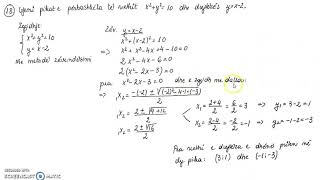 (13) Gjeni pikat e përbashkëta të rrethit x²+y²=10 dhe drejtëzës y=x-2.
Zgjidhje
{ x²+y²=10
{ y=x-2
me metodën zëvendësimi
Zëv. y=x-2
x²+(x-2)²=10
x²+x²-4x+4-10=0
2x²-4x-6=0
2(x²-2x-3)=0
pra x²-2x-3=0 dhe e zgjidh me dallor:
₁x₂ = -(-2) ± √(-2)²-4·1·(-3) / 2
₁x₂ = 2 ± √4+12 / 2
₁x₂ = 2 ± √16 / 2
x₁ = 2+4 / 2 = 6 / 2 = 3 ⇒ y₁=3-2=1
x₂ = 2-4 / 2 = -2 / 2 = -1 ⇒ y₂=-1-2=-3
Pra rrethi e drejtëza e dhënë priten në
dy pika: (3;1) dhe (-1;-3)
RECORDED WITH
SCREENCAST MATIC